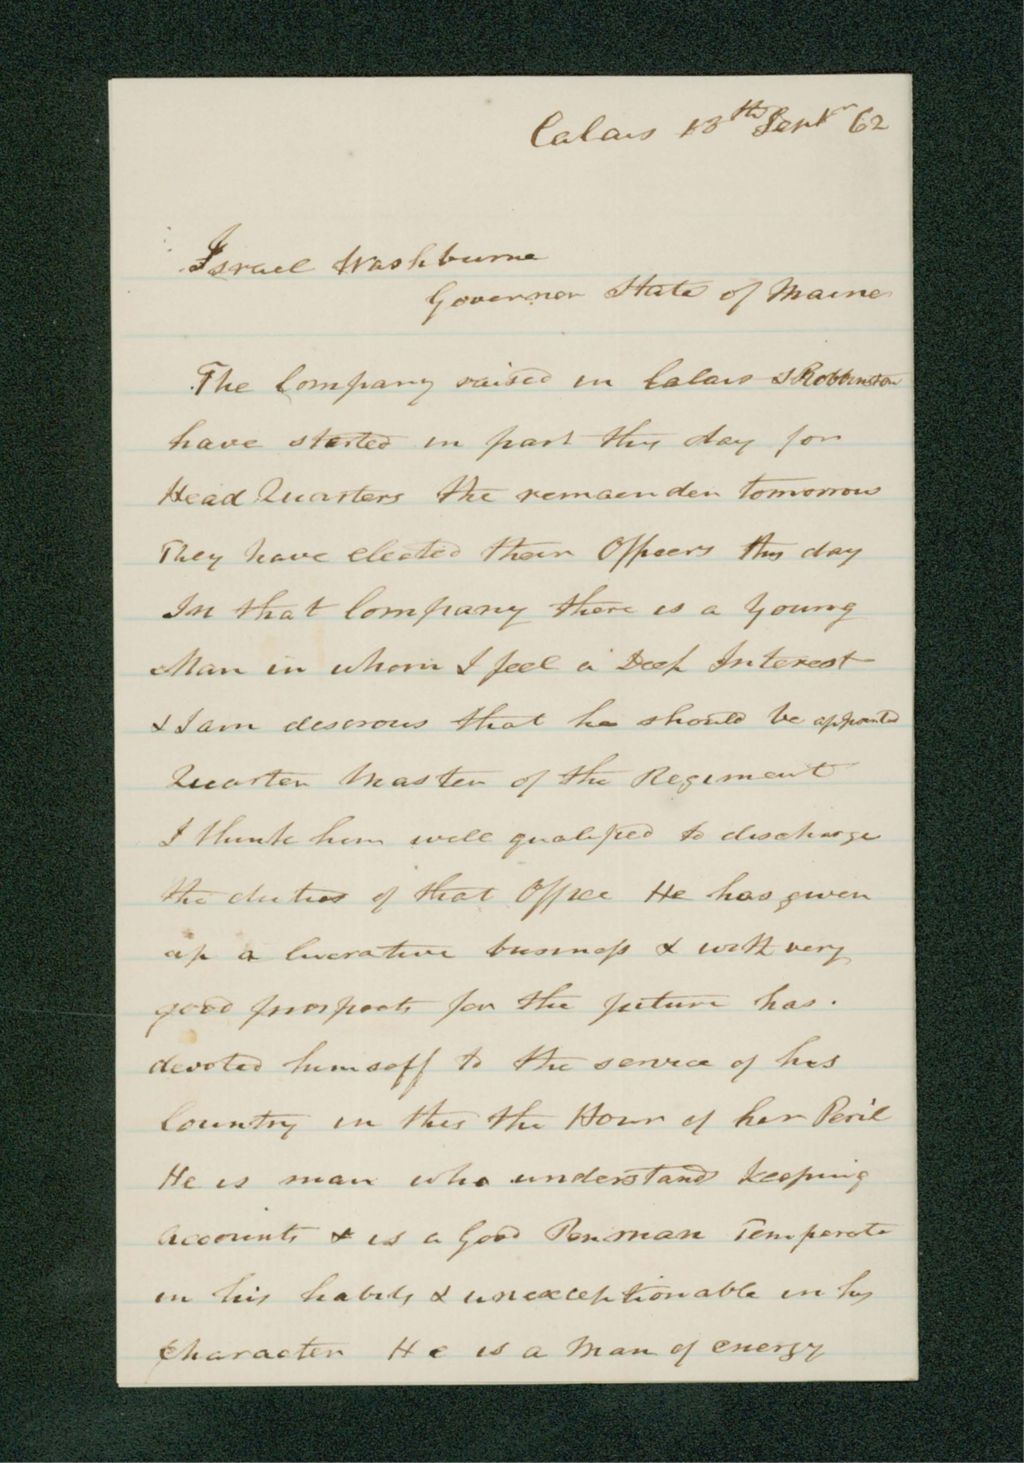 Calais 13th Septr 62
Israel Washburne
Governor State of Maine
The Company raised in Calais & Robbinston
have started in part this day for
Head Quarters the remainder tomorrow
They have elected their Officers this day
In that Company there is a young
Man in whom I feel a Deep Interest
& I am desirous that he should be appointed
Quarter Master of the Regiment
I think him well qualified to discharge
the duties of that Office He has given
up a lucrative business & with very
good prospects for the future has.
devoted himself to the service of his
Country in this the Hour of her Peril
He is man who understands keeping
accounts & is a Good Penman Temperate
in his habits & unexceptionable in his
Character He is a Man of energy